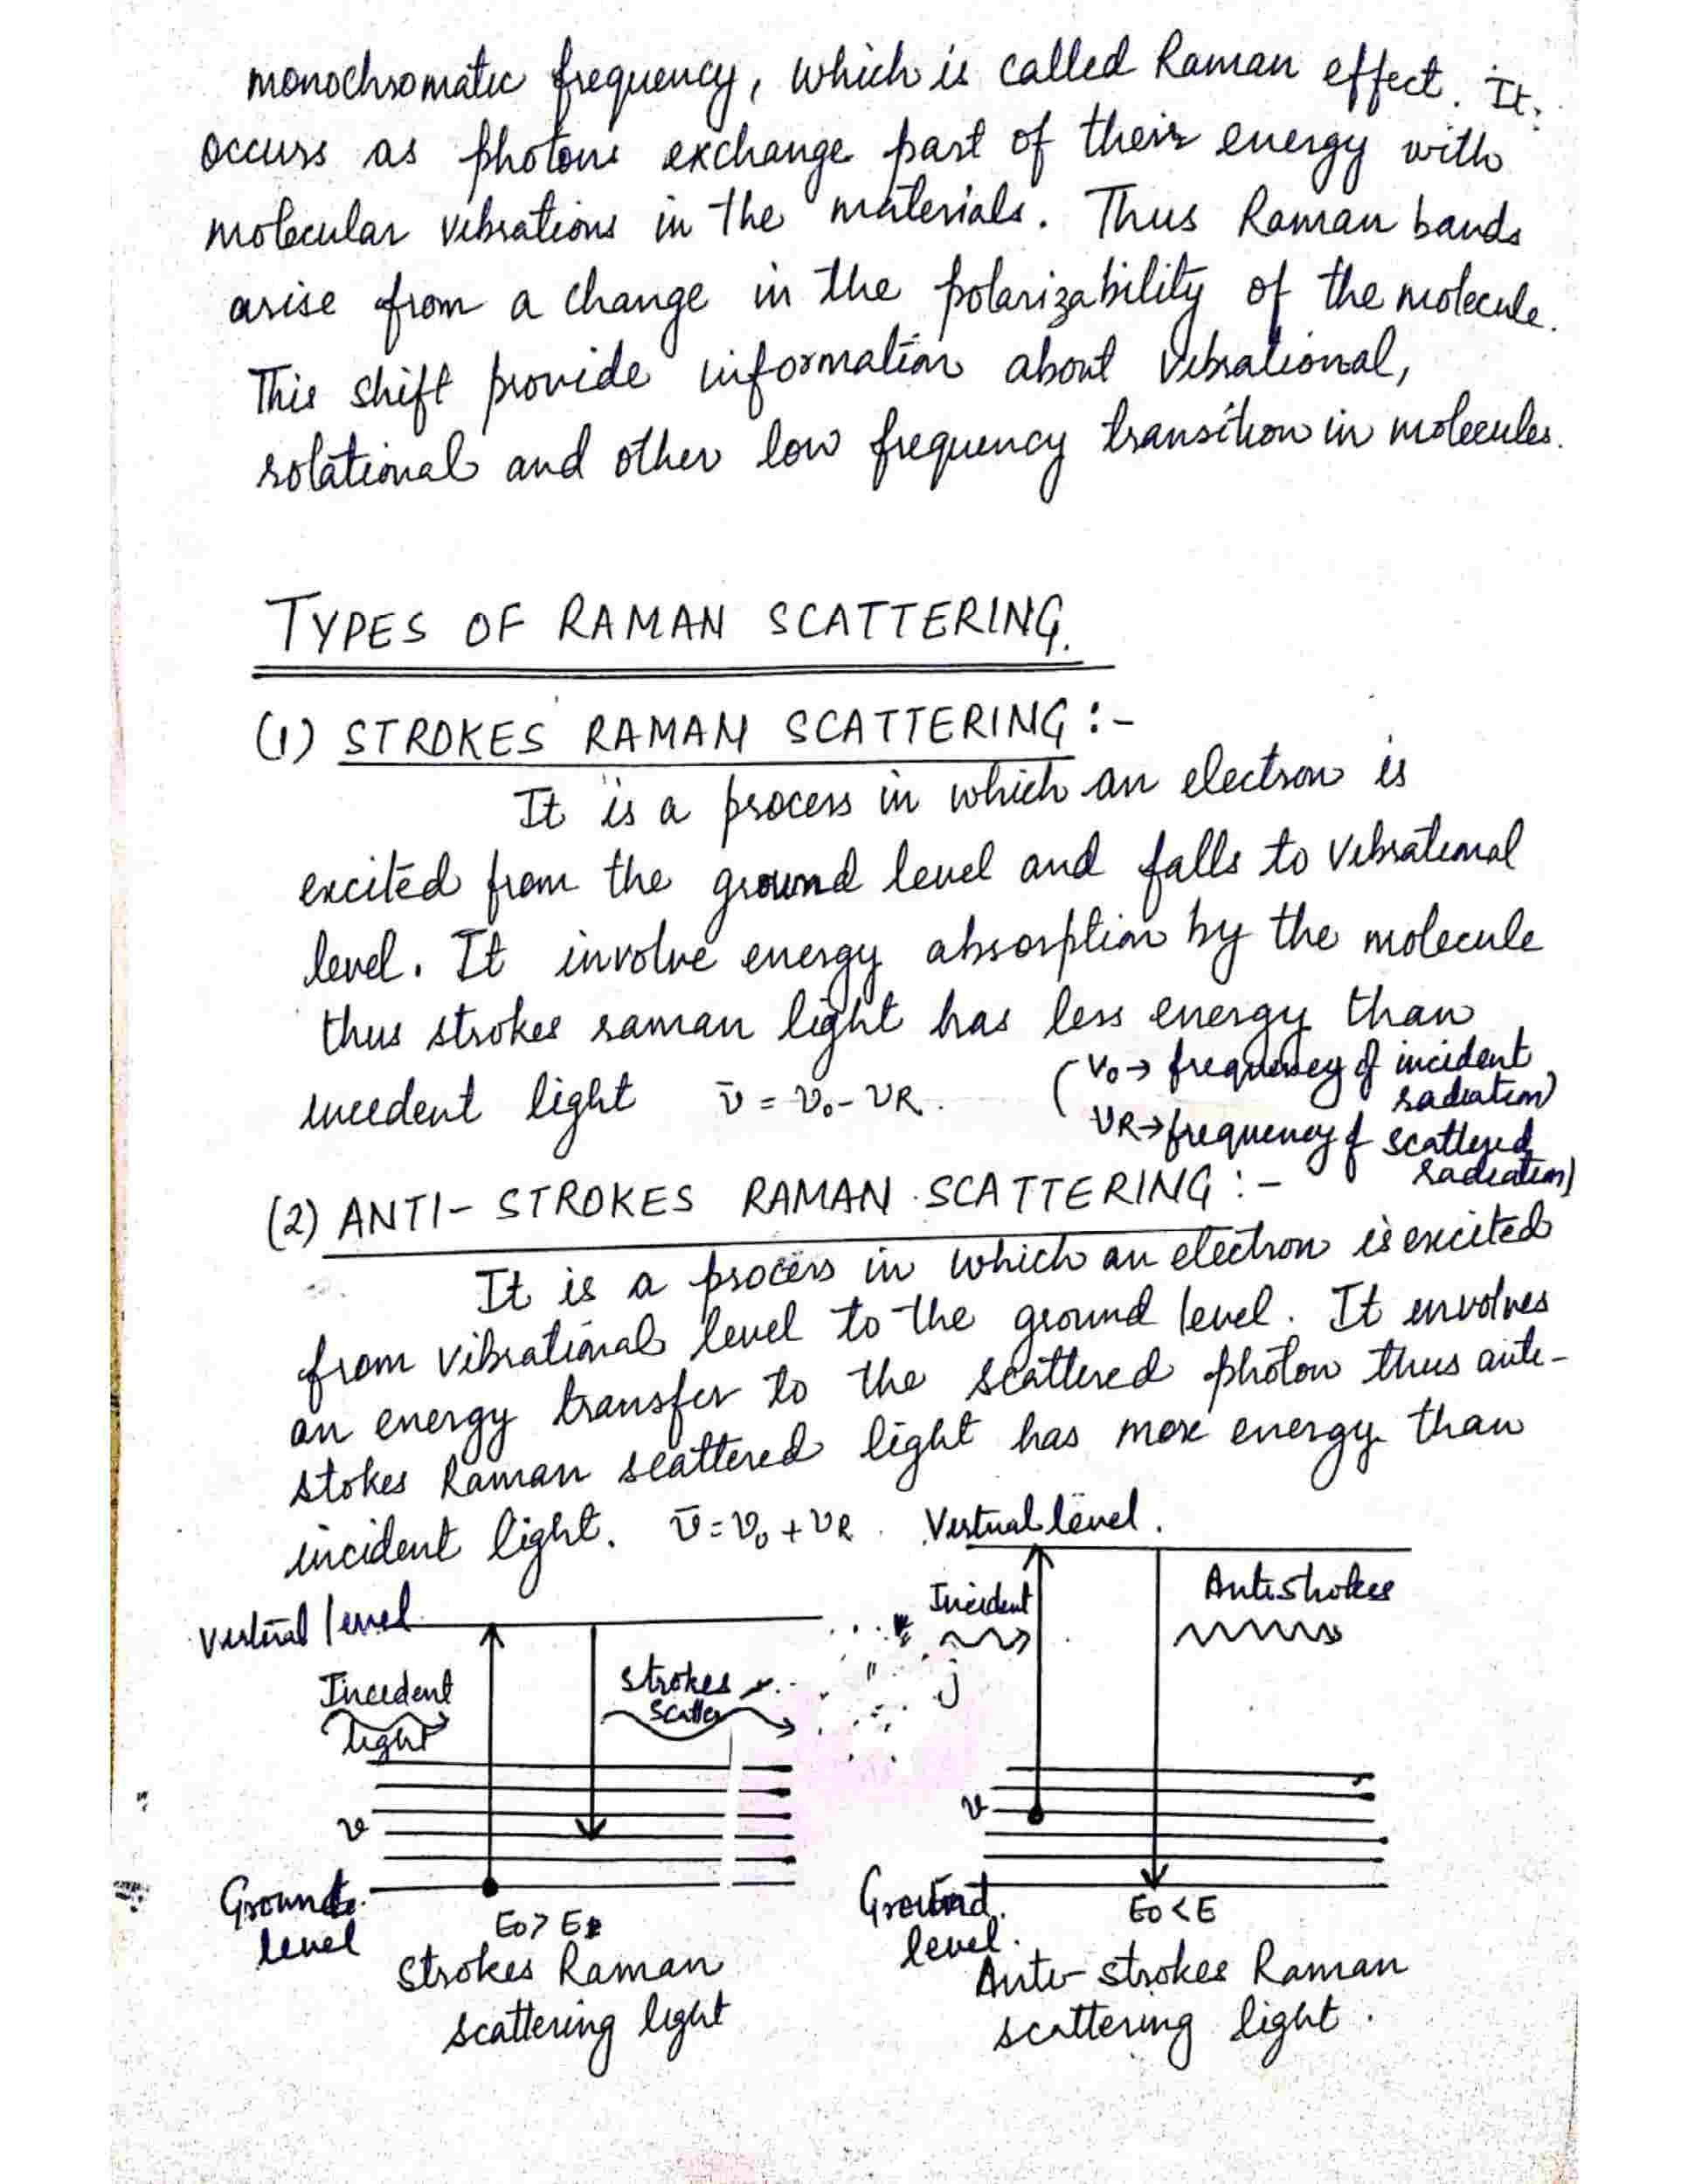 monochromatic frequency, which is called Raman effect. It
occurs as photons exchange part of their energy with
molecular vibrations in the materials. Thus Raman bands
arise from a change in the polarizability of the molecule.
This shift provide information about vibrational,
rotational and other low frequency transition in molecules.
TYPES OF RAMAN SCATTERING.
(1) STROKES RAMAN SCATTERING :-
It is a process in which an electron is
excited from the ground level and falls to vibrational
level. It involve energy absorption by the molecule
thus strokes raman light has less energy than
incedent light ῡ = υ₀ - υR.
(υ₀ → frequency of incident
radiation)
υR → frequency of scattered
radiation)
(2) ANTI-STROKES RAMAN SCATTERING :-
It is a process in which an electron is excited
from vibrational level to the ground level. It involves
an energy transfer to the scattered photon thus anti-
stokes Raman scattered light has more energy than
incident light. ῡ = υ₀ + υR.
Vertual level.
Incident
Antistrokes
Vertual level
Incedent
light
strokes
scatter
υ
Ground
level
E₀ > E
Strokes Raman
scattering light
υ
Ground
level.
E₀ < E
Anti-strokes Raman
scattering light.